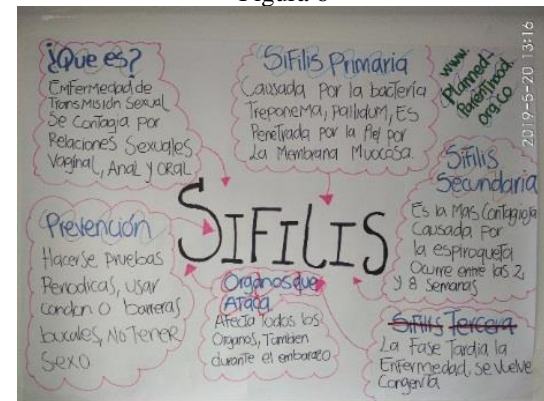 ¿Que es?
Enfermedad de
Transmisión Sexual
Se Contagia por
Relaciones Sexuales
Vaginal, Anal y oral
Sifilis Primaria
Causada por la bacteria
Treponema, Pallidum, Es
Penetrada por la Piel por
La Membrana Muocosa.
www.
Planned-
Parenthood.
org.co
2019-5-20 13:16
Sifilis
Secundaria
Es la Mas Contagiosa
Causada por
la espiroqueta
Ocurre entre las 2
y 8 semanas
SIFILIS
Prevención
Hacerse pruebas
Periodicas, usar
condon o barreras
bucales, No Tener
Sexo
Organos que
Ataca
Afecta Todos los
Organos, Tambien
durante el embarazo
Sifilis Tercera
La Fase Tardia la
Enfermedad, se Vuelve